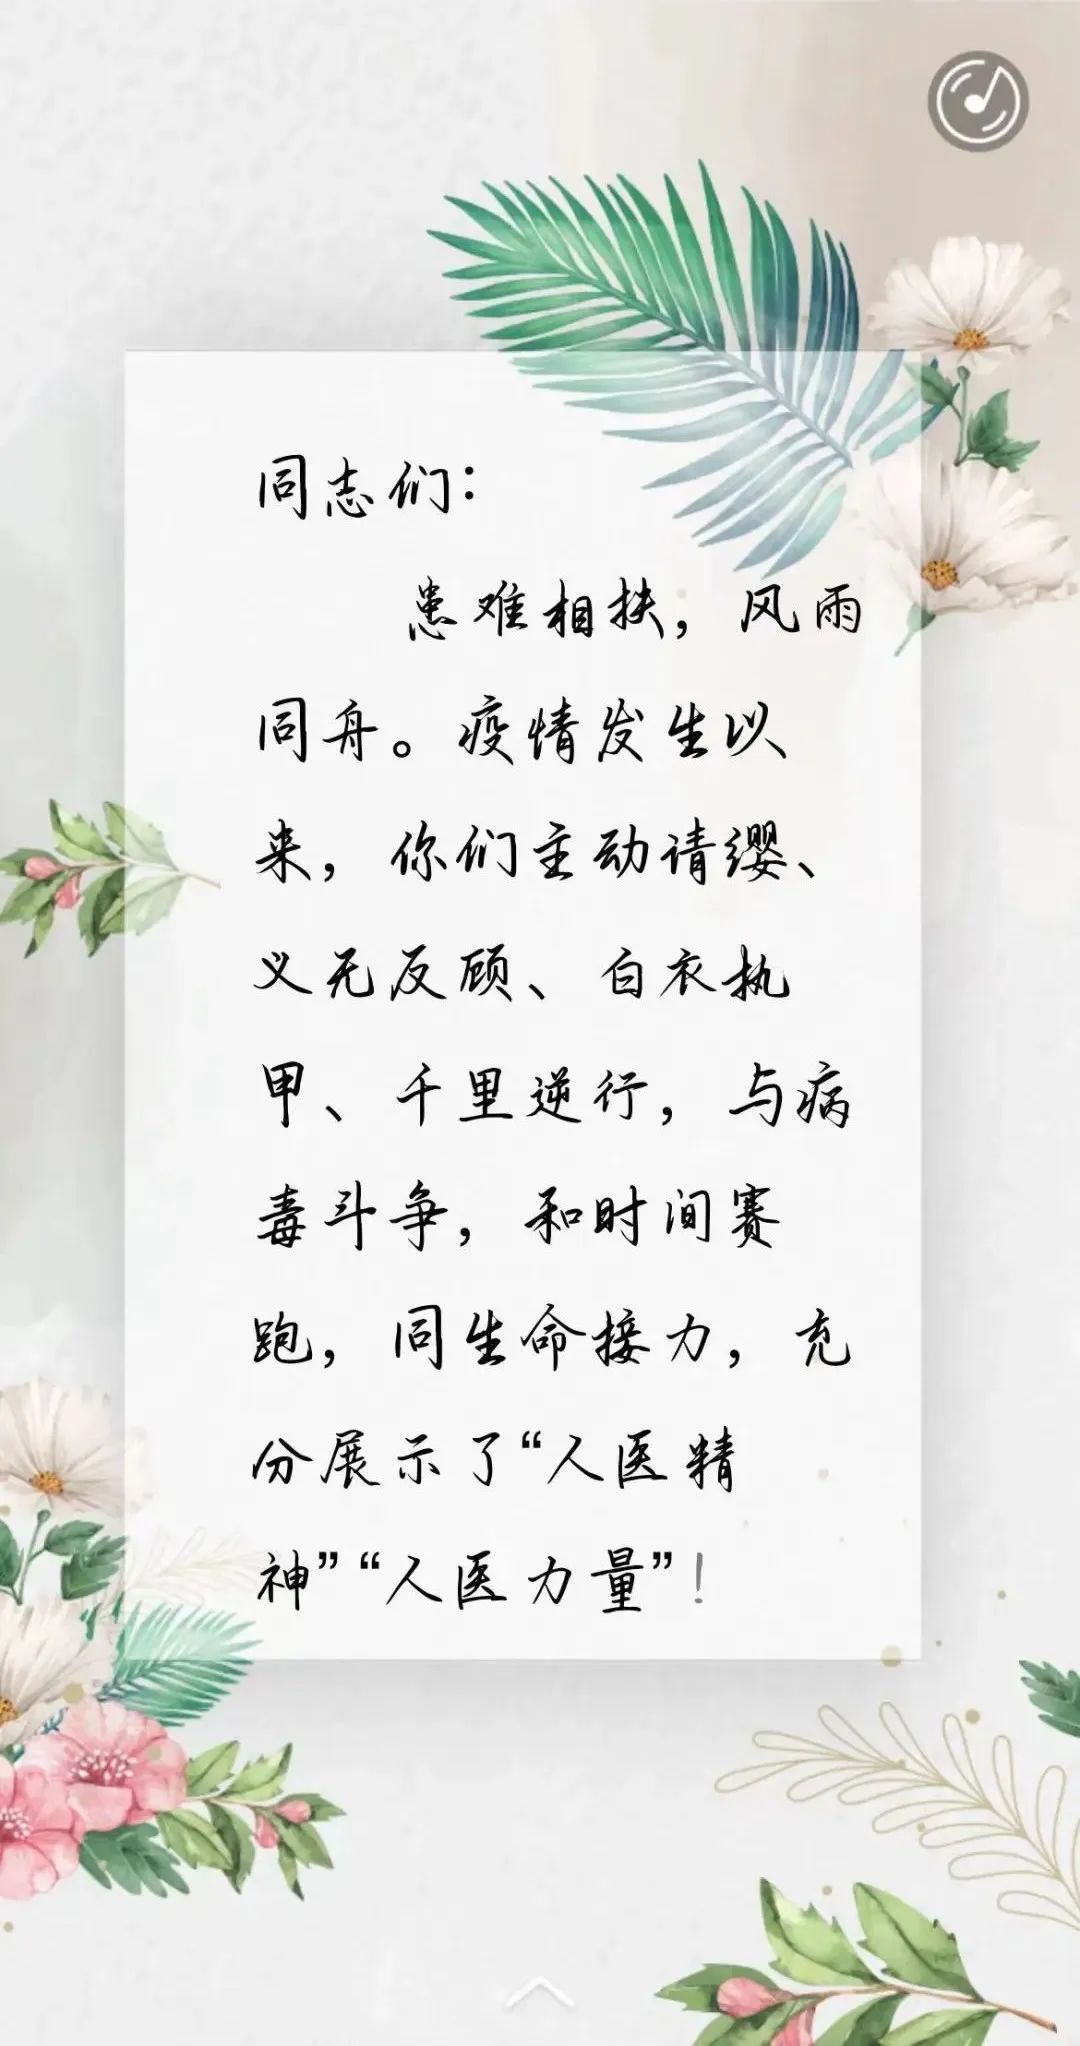 同志们：
患难相扶，风雨
同舟。疫情发生以
来，你们主动请缨、
义无反顾、白衣执
甲、千里逆行，与病
毒斗争，和时间赛
跑，同生命接力，充
分展示了“人医精
神”“人医力量”！